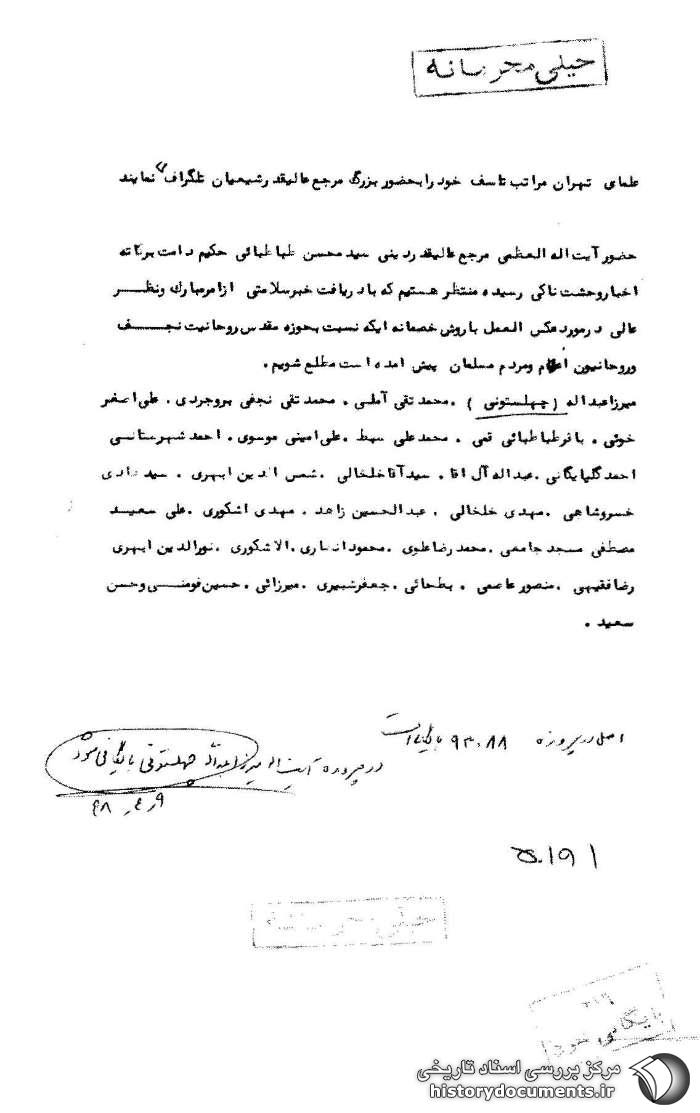 خیلی محرمانه
علمای تهران مراتب تاسف خود را بحضور بزرگ مرجع عالیقدر شیعیان تلگراف نمایند
حضور آیت اله العظمی مرجع عالیقدر دینی سید محسن طباطبائی حکیم دامت برکاته
اخبار وحشت ناکی رسیده منتظر هستیم که با دریافت خبر سلامتی از امر مبارک و نظر
عالی در مورد عکس العمل با روش خصمانه ایکه نسبت بحوزه مقدس روحانیت نجف
و روحانیون اعلام و مردم مسلمان پیش امده است مطلع شویم.
میرزا عبداله (چهلستونی) . محمد تقی آملی . محمد تقی نجفی بروجردی . علی اصغر
خوئی . باقر طباطبائی قمی . محمد علی سبط . علی امینی موسوی . احمد شهرستانی
احمد گلپایگانی . عبداله آل اقا . سید آقا خلخالی . شمس الدین ابهری . سید هادی
خسروشاهی . مهدی خلخالی . عبدالحسین زاهد . مهدی اشکوری . علی سعید
مصطفی مسجد جامعی . محمد رضا علوی . محمود انصاری . الاشکوری . نورالدین ابهری
رضا فقیهی . منصور عاصمی . بطحائی . جعفر شبیری . میرزائی . حسین فومنی و حسن
سعید .
اصل در پرونده ۹۳۰۸۸ بایگانی است
در پرونده آیت اله میرزا عبداله چهلستونی بایگانی شود
۴۸
۱۹۱
خیلی محرمانه
۳۱۶
بایگانی شود
مرکز بررسی اسناد تاریخی
historydocuments.ir